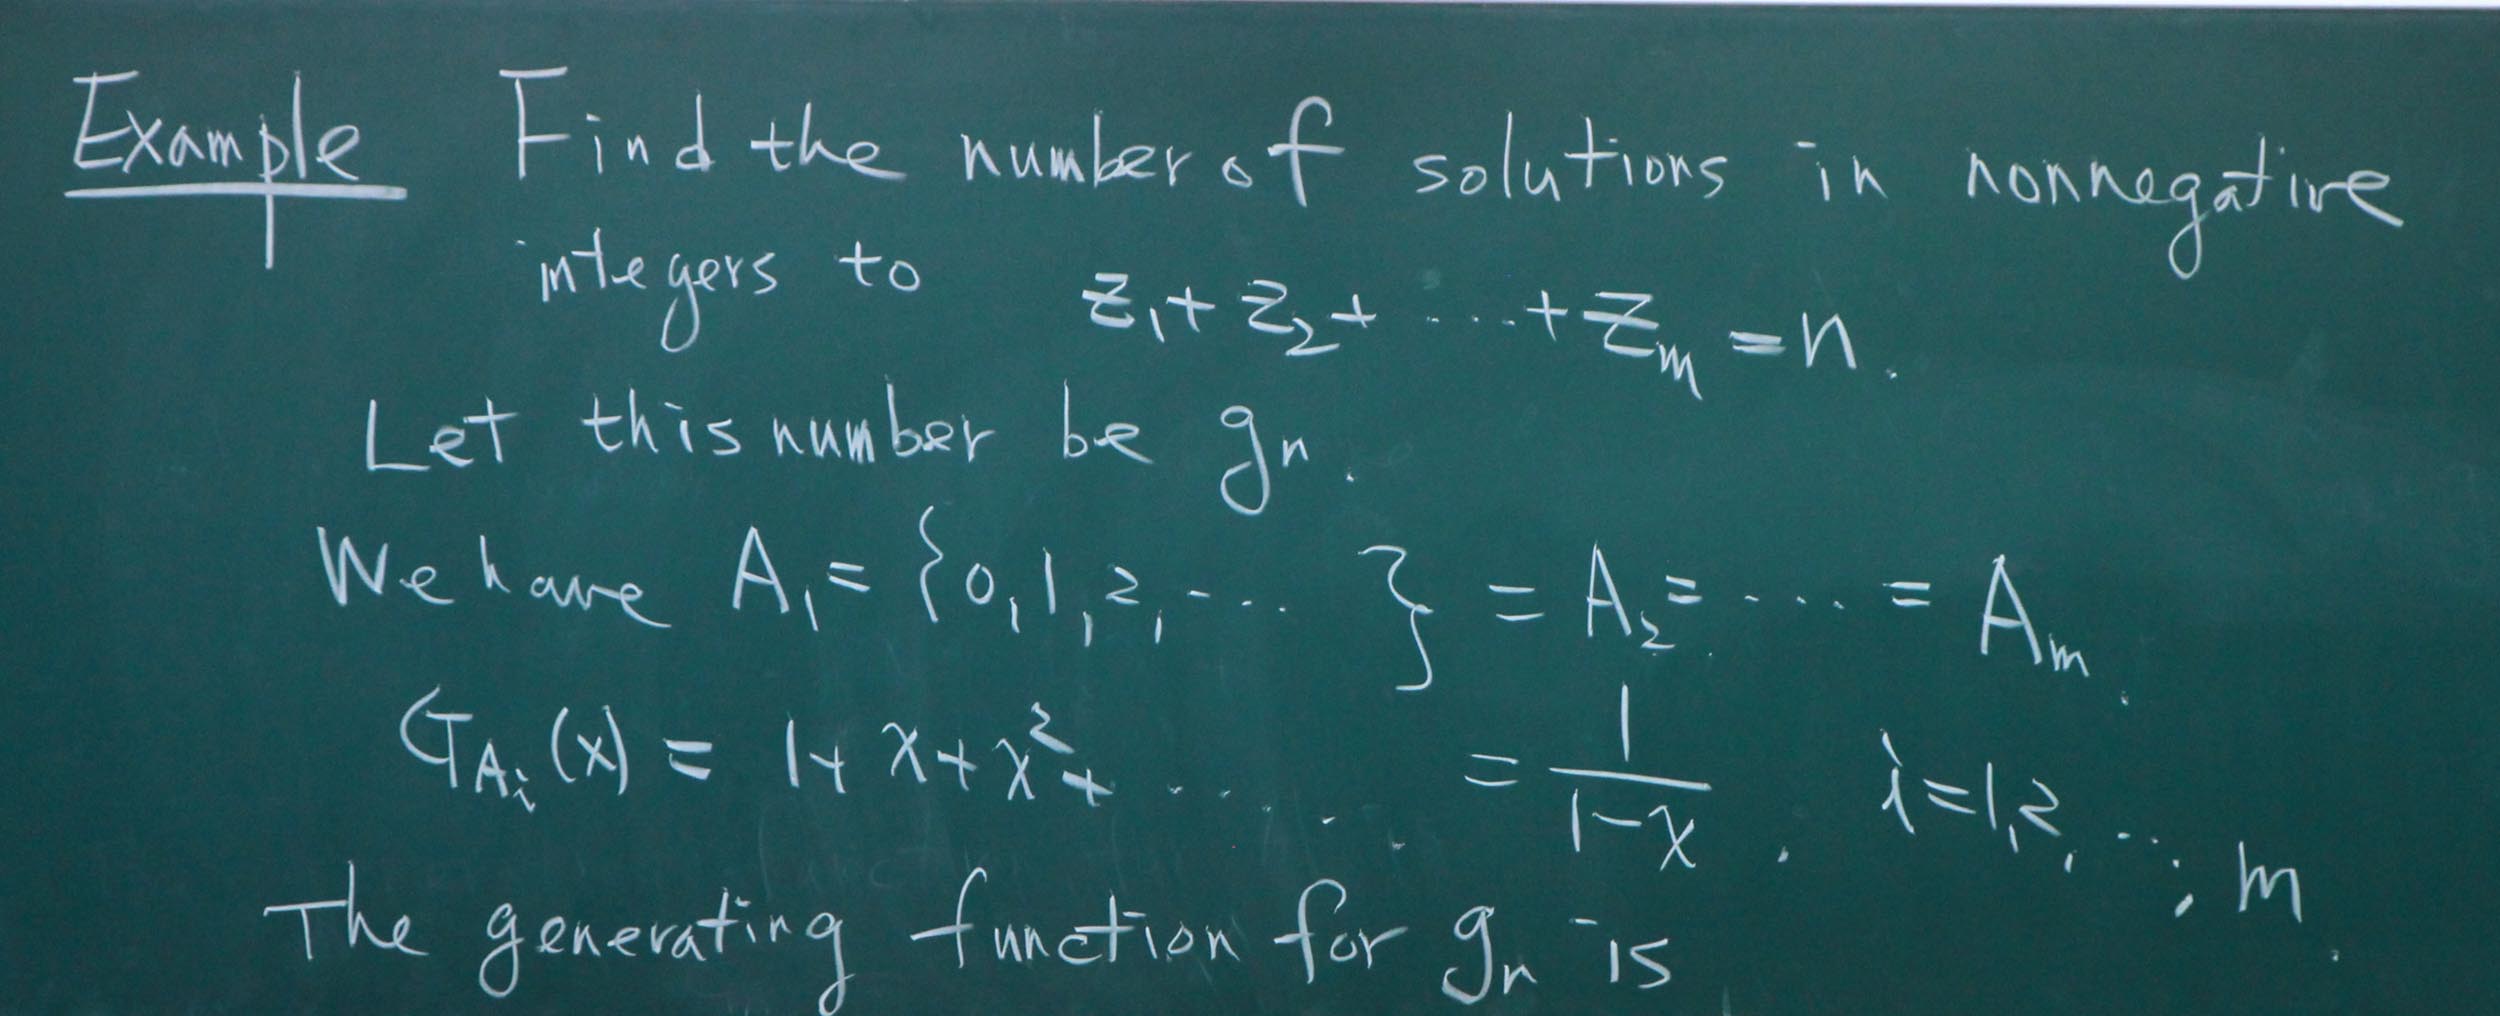 Example Find the number of solutions in nonnegative
integers to z₁+z₂+ ···· +zₘ =n.
Let this number be gₙ.
We have A₁= {0,1,2,---- } = A₂= ···· = Aₘ.
G_{Aᵢ}(x) = 1+x+x²+ ····· = 1/(1-x). i=1,2, ···, m.
The generating function for gₙ is